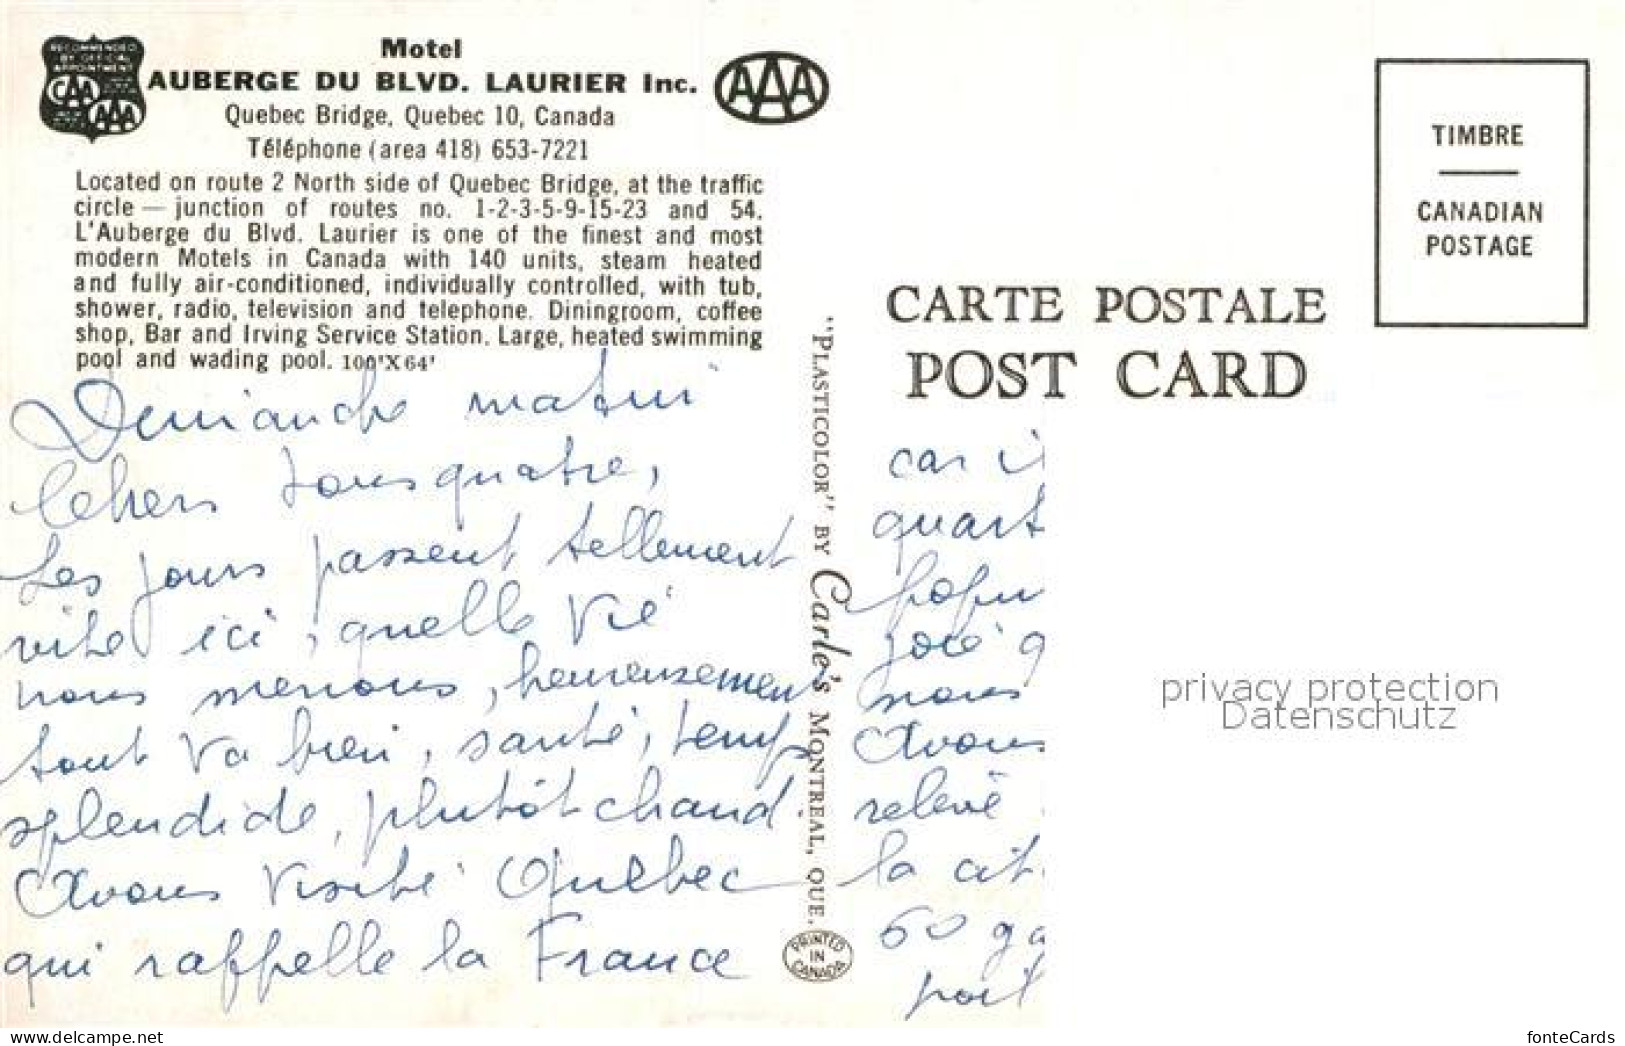 RECOMMENDED
BY OFFICIAL
APPOINTMENT
CAA
AAA
Motel
AUBERGE DU BLVD. LAURIER Inc.
AAA
Quebec Bridge, Quebec 10, Canada
Téléphone (area 418) 653-7221
Located on route 2 North side of Quebec Bridge, at the traffic
circle — junction of routes no. 1-2-3-5-9-15-23 and 54.
L'Auberge du Blvd. Laurier is one of the finest and most
modern Motels in Canada with 140 units, steam heated
and fully air-conditioned, individually controlled, with tub,
shower, radio, television and telephone. Diningroom, coffee
shop, Bar and Irving Service Station. Large, heated swimming
pool and wading pool. 100'X64'
Dimanche matin
Chers tous quatre,
Les jours passent tellement
vite ici, quelle vie
nous menons, heureusement
tout va bien, santé, temps
splendide, plutôt chaud.
Avons visité Québec
qui rappelle la France
"PLASTICOLOR" BY Carle's MONTREAL, QUE.
PRINTED
IN
CANADA
TIMBRE
CANADIAN
POSTAGE
CARTE POSTALE
POST CARD
car i
quart
popu
nous
Avons
relevé
la cit
60 ga
port
privacy protection
Datenschutz
fonteCards